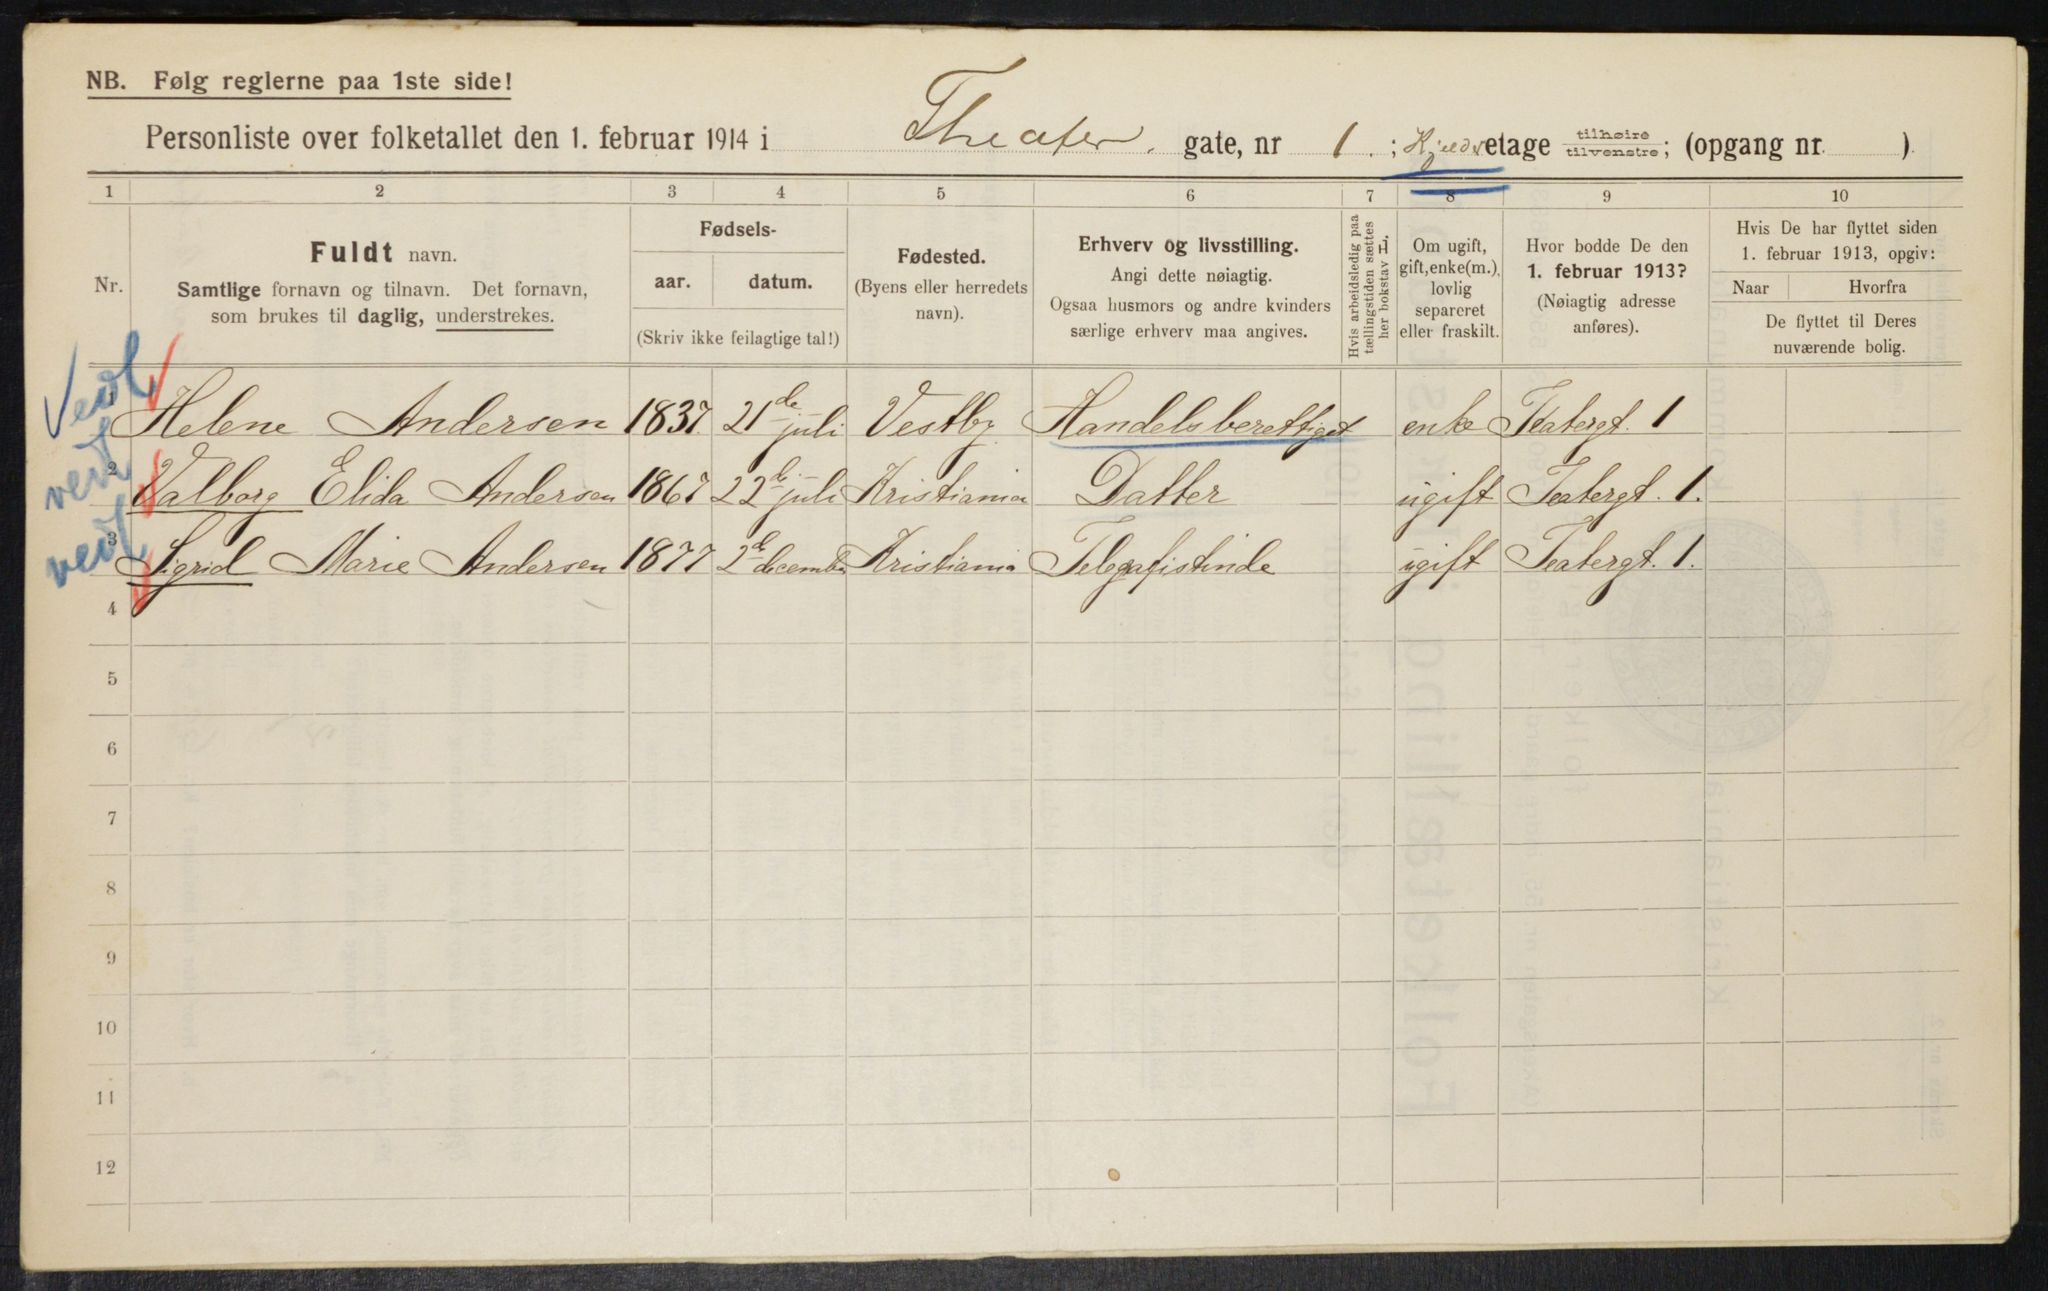 NB. Følg reglerne paa 1ste side!
Personliste over folketallet den 1. februar 1914 i Theater. gate, nr 1. ; Kjelder etage tilhøire tilvenstre; (opgang nr. ).
1 2 3 4 5 6 7 8 9 10
Nr.
Fuldt navn.
Samtlige fornavn og tilnavn. Det fornavn,
som brukes til daglig, understrekes.
Fødsels-
aar. datum.
(Skriv ikke feilagtige tal!)
Fødested.
(Byens eller herredets
navn).
Erhverv og livsstilling.
Angi dette nøiagtig.
Ogsaa husmors og andre kvinders
særlige erhverv maa angives.
Hvis arbeidsledig paa
tællingstiden sættes
her bokstav L.
Om ugift,
gift, enke(m.),
lovlig
separeret
eller fraskilt.
Hvor bodde De den
1. februar 1913?
(Nøiagtig adresse
anføres).
Hvis De har flyttet siden
1. februar 1913, opgiv:
Naar Hvorfra
De flyttet til Deres
nuværende bolig.
1 Helene Andersen 1837 21de juli Vestby Handelsberettiget enke Teatergt. 1
2 Valborg Elida Andersen 1867 22de juli Kristiania Datter ugift Teatergt. 1.
3 Sigrid Marie Andersen 1877 2de december Kristiania Telegrafistinde ugift Teatergt. 1.
4
5
6
7
8
9
10
11
12